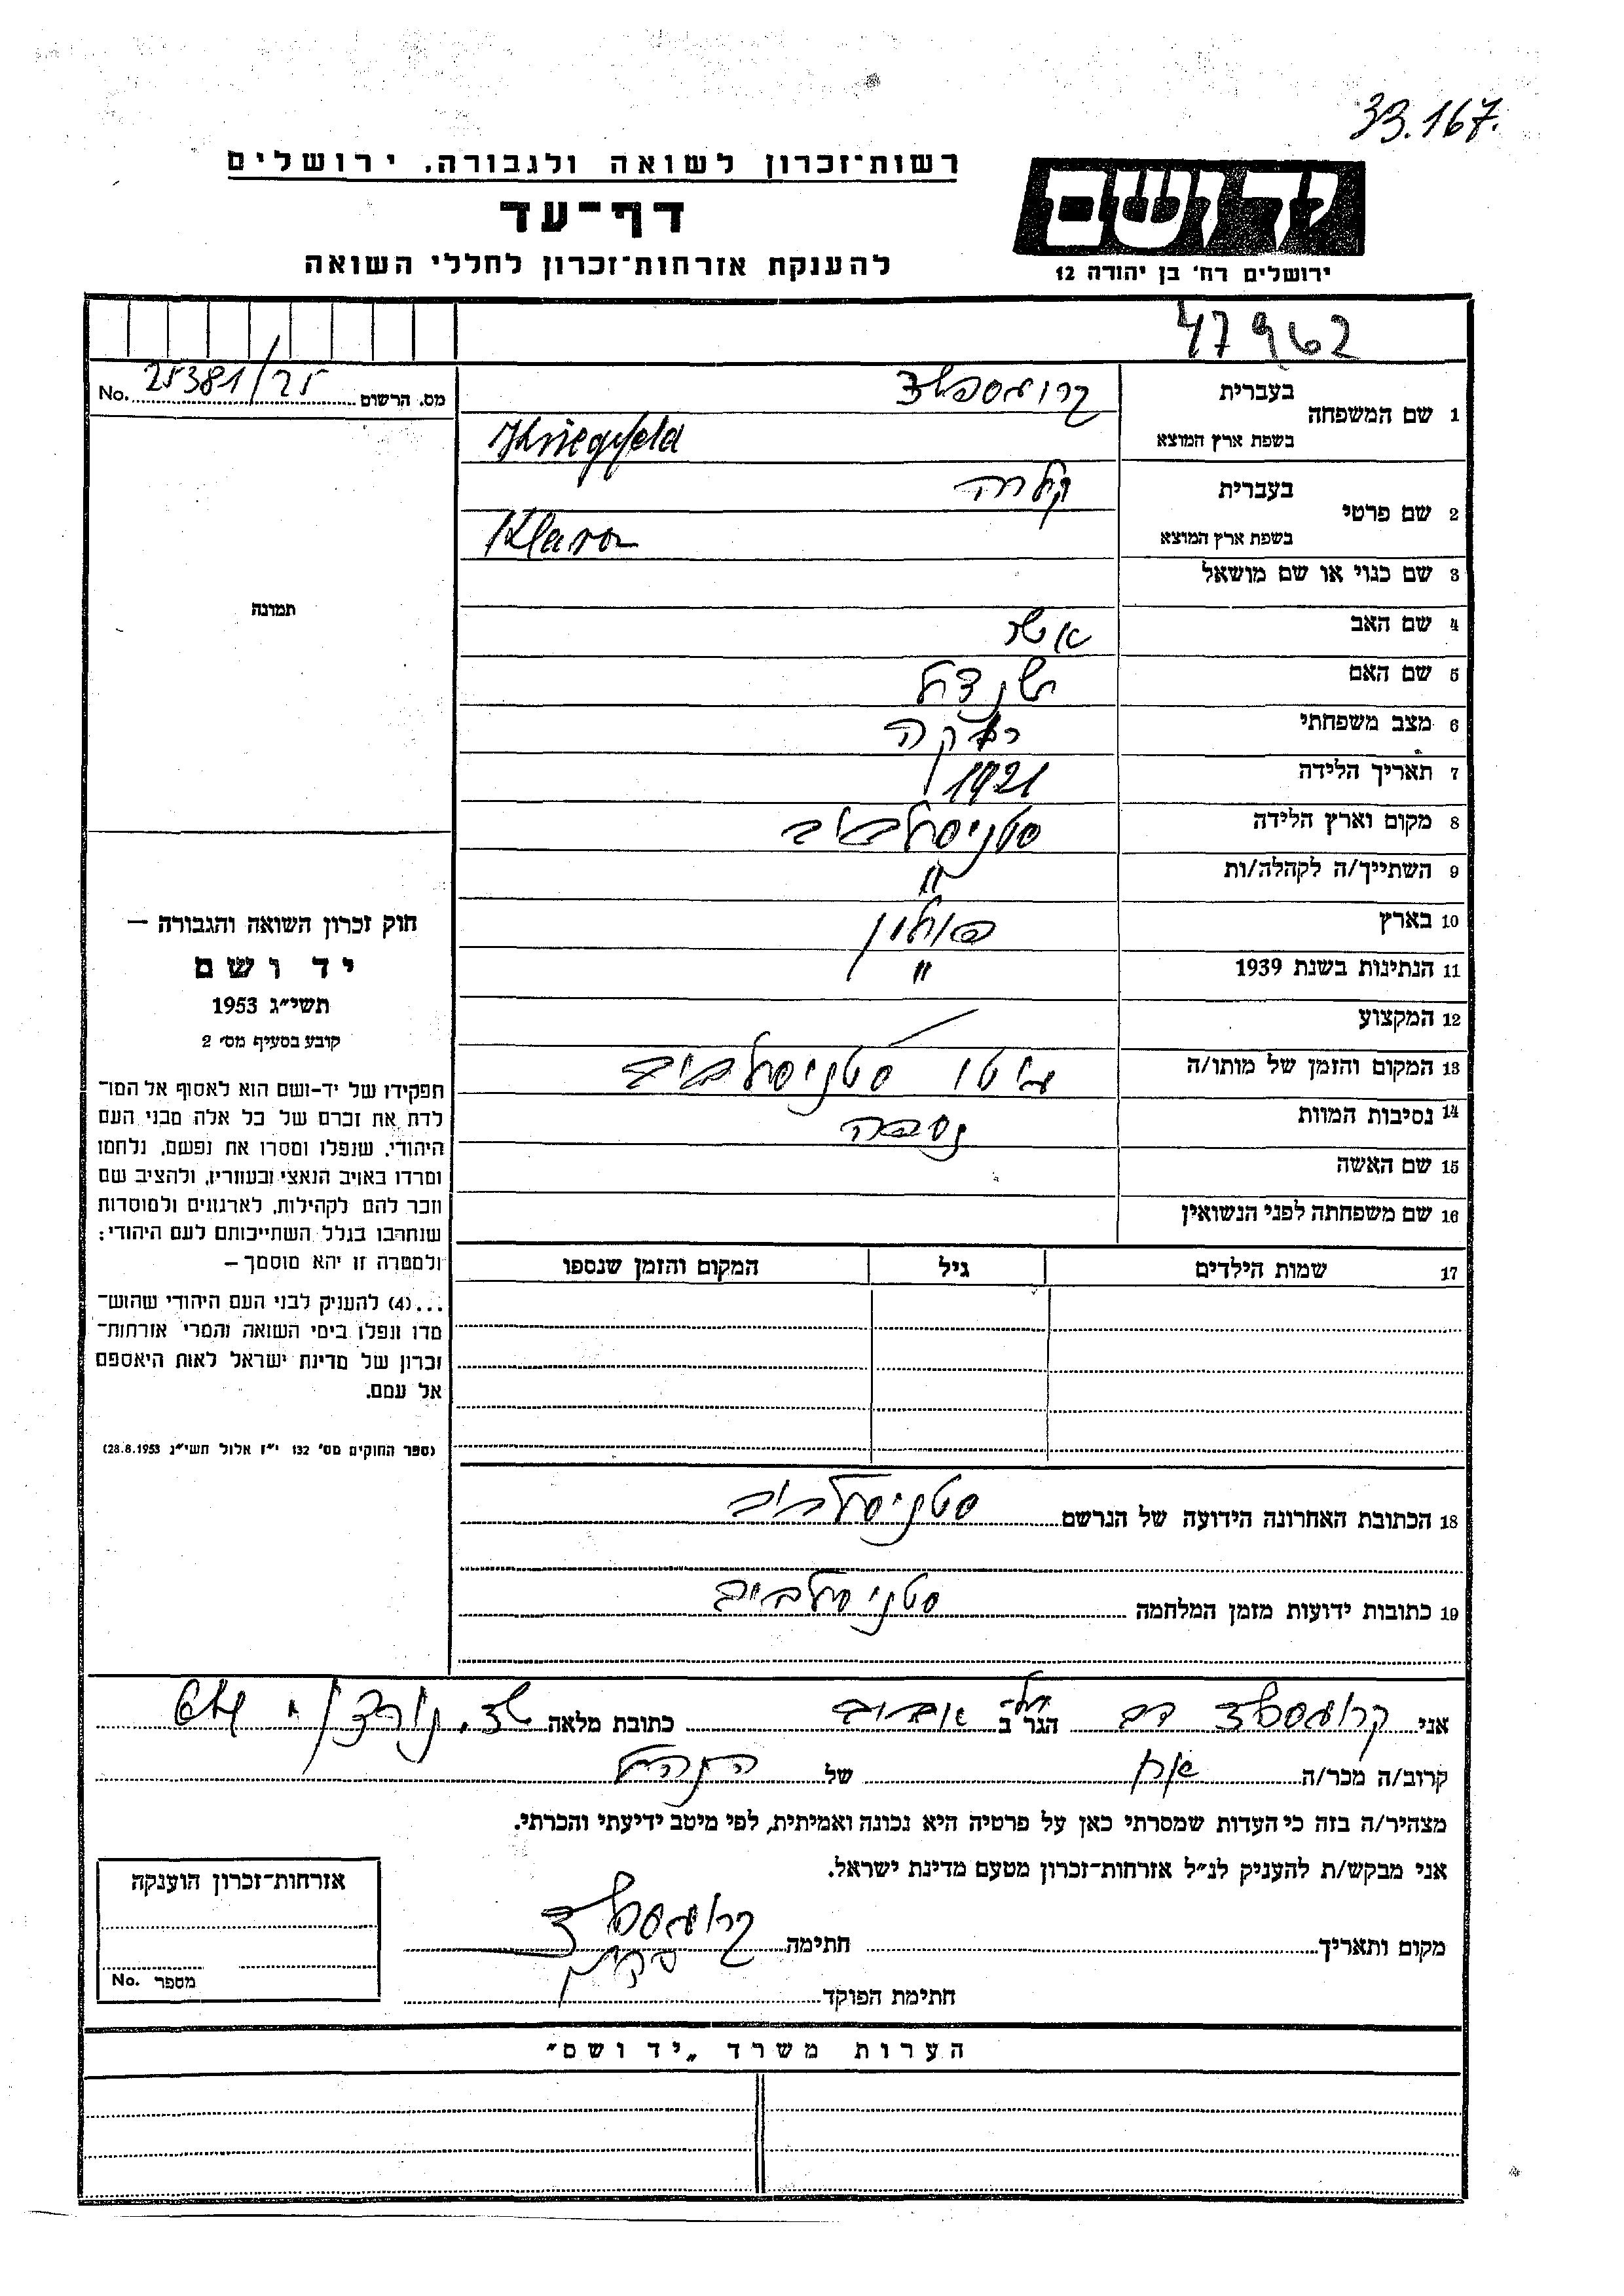 33.167.
יד ושם
ירושלים רח' בן יהודה 12
רשות־זכרון לשואה ולגבורה, ירושלים
דף־עד
להענקת אזרחות־זכרון לחללי השואה
47962
מס. הרשום No. 25381/25
תמונה
1 שם המשפחה
בעברית
בשפת ארץ המוצא Kriegsfeld
2 שם פרטי
בעברית קלרה
בשפת ארץ המוצא Klara
3 שם כנוי או שם מושאל
4 שם האב
5 שם האם
6 מצב משפחתי רוקה
7 תאריך הלידה 1921
8 מקום וארץ הלידה סטניסלבוב
9 השתייך/ה לקהלה/ות "
10 בארץ פולין
11 הנתינות בשנת 1939 "
12 המקצוע —
13 המקום והזמן של מותו/ה גיטו סטניסלבוב
14 נסיבות המוות נספה
15 שם האשה
16 שם משפחתה לפני הנשואין
17 שמות הילדים גיל המקום והזמן שנספו
חוק זכרון השואה והגבורה —
יד ושם
תשי"ג 1953
קובע בסעיף מס' 2
תפקידו של יד-ושם הוא לאסוף אל המו־
לדת את זכרם של כל אלה מבני העם
היהודי, שנפלו ומסרו את נפשם, נלחמו
ומרדו באויב הנאצי ובעוזריו, ולהציב שם
וזכר להם לקהילות, לארגונים ולמוסדות
שנחרבו בגלל השתייכותם לעם היהודי;
ולמטרה זו יהא מוסמך –
...(4) להעניק לבני העם היהודי שהוש־
מדו ונפלו בימי השואה והמרי אזרחות־
זכרון של מדינת ישראל לאות היאספם
אל עמם.
(ספר החוקים מס' 132 י"ז אלול תשי"ג 28.8.1953)
18 הכתובת האחרונה הידועה של הנרשם סטניסלבוב
19 כתובות ידועות מזמן המלחמה סטניסלבוב
אני דב הגר ב תל אביב כתובת מלאה
קרוב/ה מכר/ה אח של
מצהיר/ה בזה כי העדות שמסרתי כאן על פרטיה היא נכונה ואמיתית, לפי מיטב ידיעתי והכרתי.
אני מבקש/ת להעניק לנ"ל אזרחות־זכרון מטעם מדינת ישראל.
מקום ותאריך חתימה
חתימת הפוקד
אזרחות־זכרון הוענקה
מספר No.
הערות משרד „יד ושם"